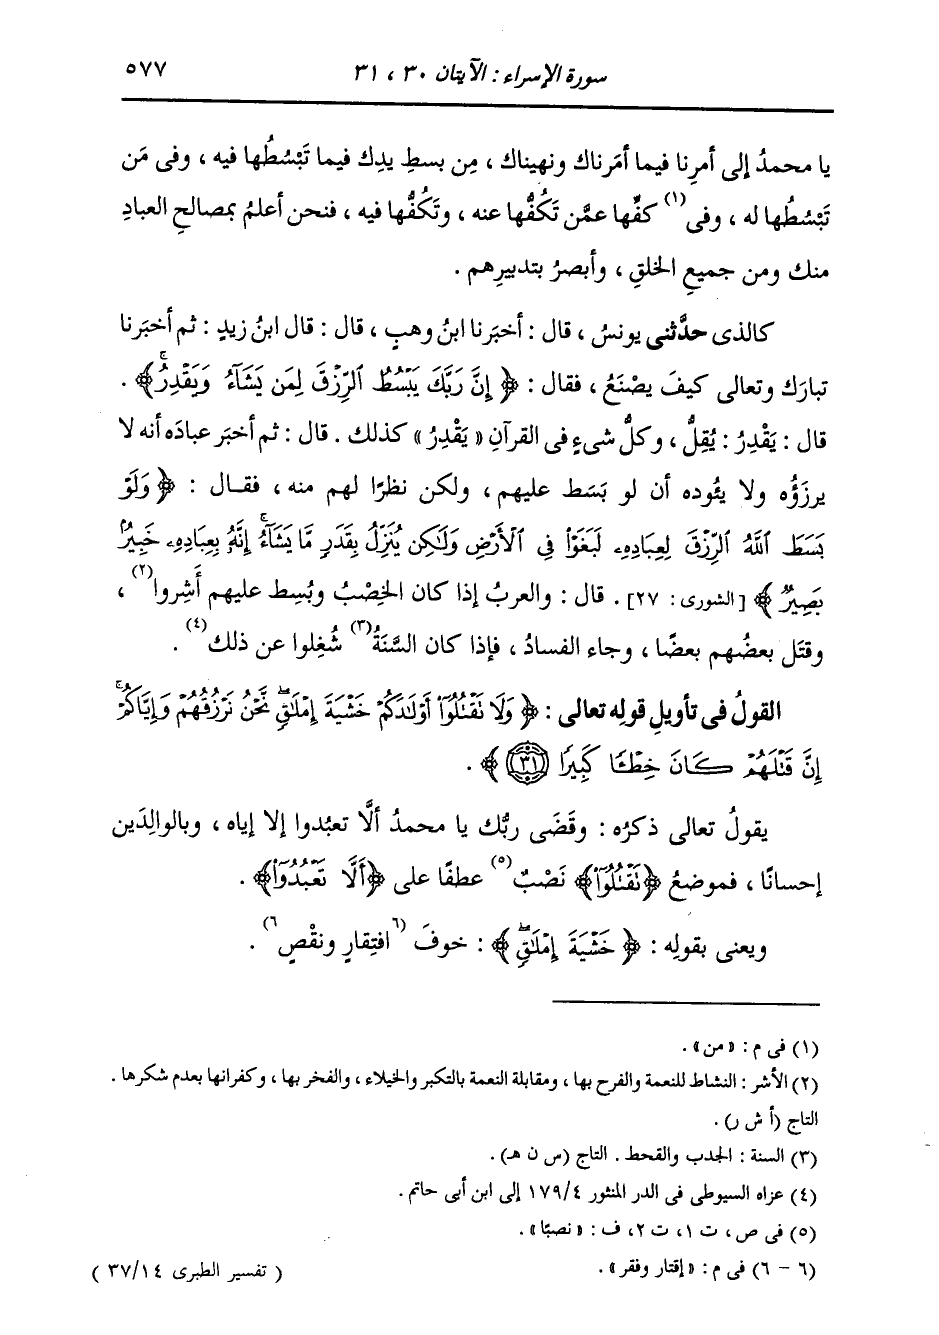 سورة الإسراء : الآيتان ٣٠ ، ٣١ ٥٧٧
يا محمدُ إلى أمرِنا فيما أمَرناك ونهيناك ، مِن بسطِ يدِك فيما تَبْسُطُها فيه ، وفى مَن
تَبْسُطُها له ، وفى(١) كفِّها عمَّن تَكُفُّها عنه ، وتَكُفُّها فيه ، فنحن أعلمُ بمصالحِ العبادِ
منك ومن جميعِ الخلقِ ، وأبصرُ بتدبيرِهم .
كالذى حدَّثنى يونسُ ، قال : أخبَرنا ابنُ وهبٍ ، قال : قال ابنُ زيدٍ : ثم أخبَرنا
تبارَك وتعالى كيفَ يصْنَعُ ، فقال : ﴿ إِنَّ رَبَّكَ يَبْسُطُ ٱلرِّزْقَ لِمَن يَشَآءُ وَيَقْدِرُۚ ﴾ .
قال : يَقْدِرُ : يُقِلُّ ، وكلُّ شىءٍ فى القرآنِ « يَقْدِرُ » كذلك . قال : ثم أخبَر عبادَه أنه لا
يرزَؤُه ولا يئُوده أن لو بَسَط عليهم ، ولكن نظرًا لهم منه ، فقال : ﴿ وَلَوْ
بَسَطَ ٱللَّهُ ٱلرِّزْقَ لِعِبَادِهِۦ لَبَغَوْا۟ فِى ٱلْأَرْضِ وَلَٰكِن يُنَزِّلُ بِقَدَرٍ مَّا يَشَآءُۚ إِنَّهُۥ بِعِبَادِهِۦ خَبِيرٌۢ
بَصِيرٌ ﴾ [الشورى : ٢٧] . قال : والعربُ إذا كان الخِصْبُ وبُسِط عليهم أَشِروا(٢) ،
وقتَل بعضُهم بعضًا ، وجاء الفسادُ ، فإذا كان السَّنَةُ(٣) شُغِلوا عن ذلك(٤) .
القولُ فى تأويلِ قولِه تعالى : ﴿ وَلَا تَقْتُلُوٓا۟ أَوْلَٰدَكُمْ خَشْيَةَ إِمْلَٰقٍۖ نَّحْنُ نَرْزُقُهُمْ وَإِيَّاكُمْۚ
إِنَّ قَتْلَهُمْ كَانَ خِطْـًٔا كَبِيرًا ٣١ ﴾ .
يقولُ تعالى ذكرُه : وقَضَى ربُّك يا محمدُ ألَّا تعبُدوا إلا إياه ، وبالوالِدَين
إحسانًا ، فموضعُ ﴿تَقْتُلُوٓا۟﴾ نَصْبٌ(٥) عطفًا على ﴿أَلَّا تَعْبُدُوٓا۟﴾ .
ويعنى بقولِه : ﴿ خَشْيَةَ إِمْلَٰقٍۖ ﴾ : خوفَ (٦افتِقارٍ ونقْصٍ٦) .
(١) فى م : «من» .
(٢) الأشر : النشاط للنعمة والفرح بها ، ومقابلة النعمة بالتكبر والخيلاء ، والفخر بها ، وكفرانها بعدم شكرها .
التاج (أ ش ر) .
(٣) السنة : الجدب والقحط . التاج (س ن هـ) .
(٤) عزاه السيوطى فى الدر المنثور ١٧٩/٤ إلى ابن أبى حاتم .
(٥) فى ص ، ت ١ ، ت ٢ ، ف : «نصبًا» .
(٦ - ٦) فى م : «إقتار وفقر» .
( تفسير الطبرى ٣٧/١٤ )